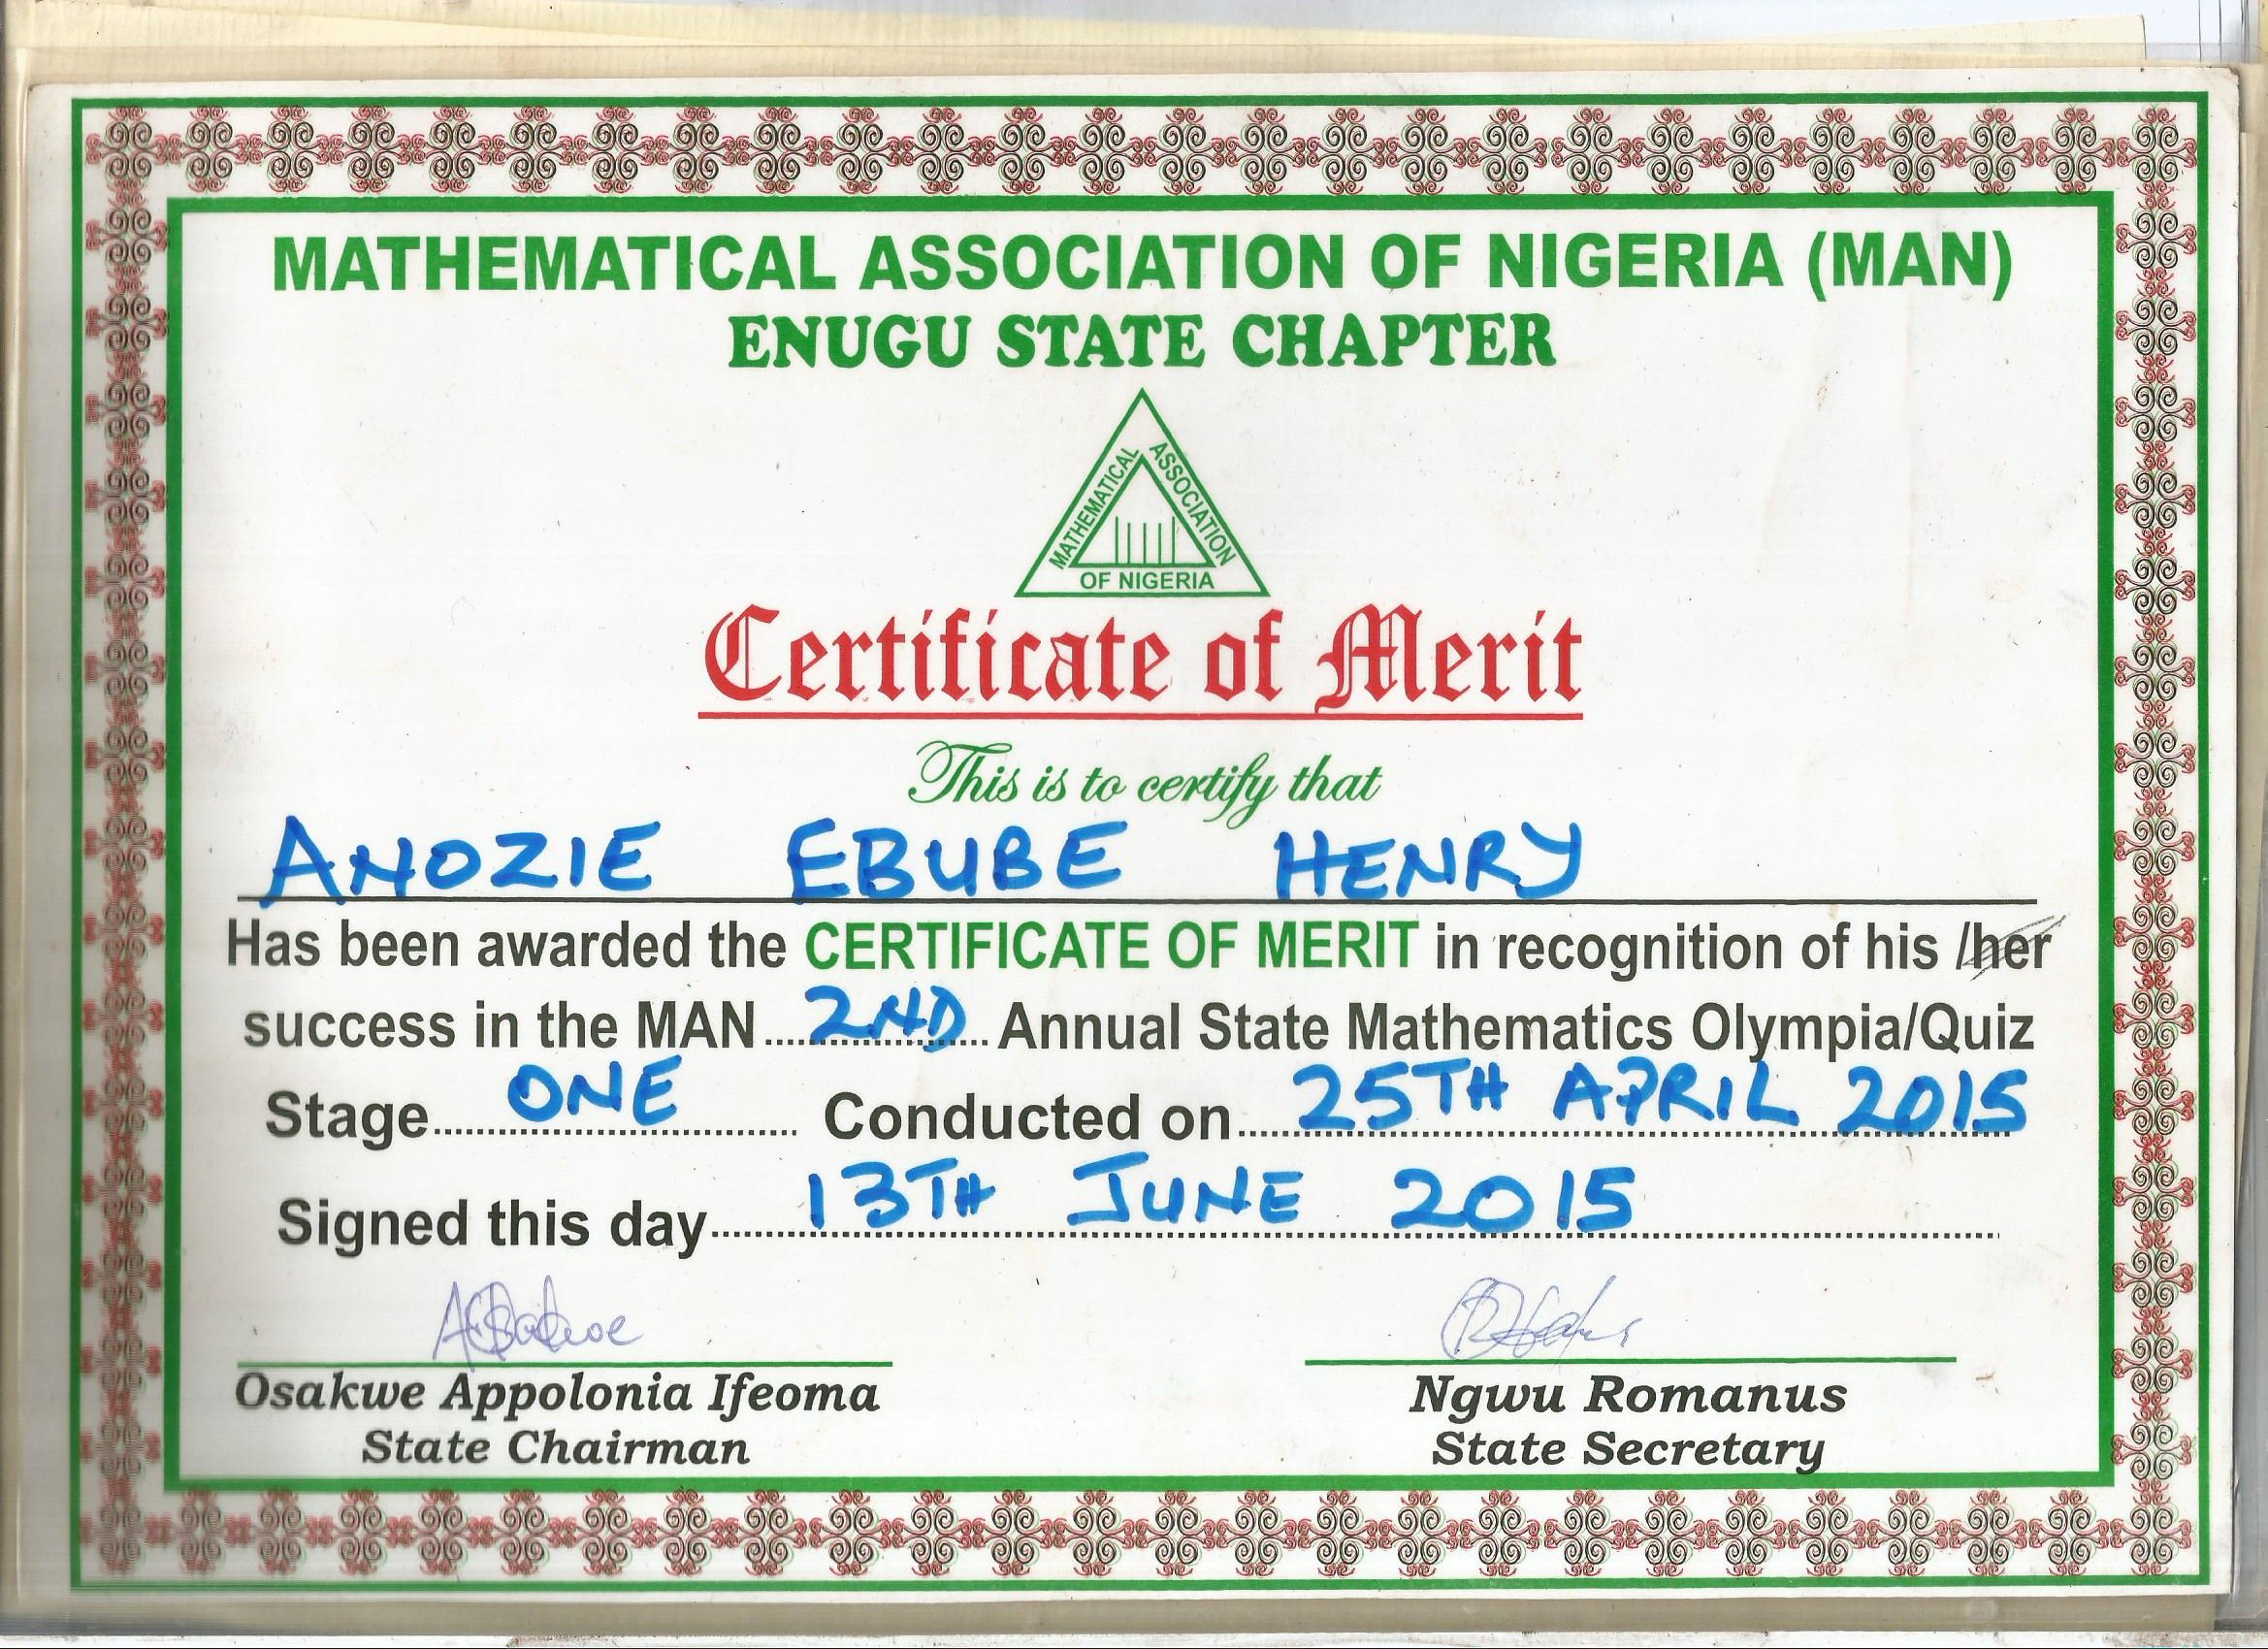 MATHEMATICAL ASSOCIATION OF NIGERIA (MAN)
ENUGU STATE CHAPTER
MATHEMATICAL ASSOCIATION
OF NIGERIA
Certificate of Merit
This is to certify that
ANOZIE EBUBE HENRY
Has been awarded the CERTIFICATE OF MERIT in recognition of his /her
success in the MAN 2ND Annual State Mathematics Olympia/Quiz
Stage ONE Conducted on 25TH APRIL 2015
Signed this day 13TH JUNE 2015
Osakwe Appolonia Ifeoma
State Chairman
Ngwu Romanus
State Secretary